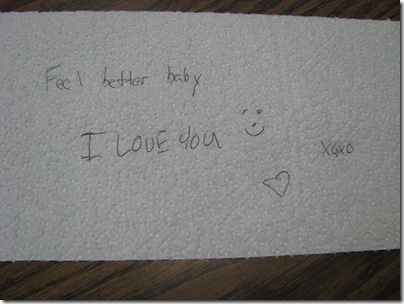 Feel better baby
I LOVE YOU
xoxo